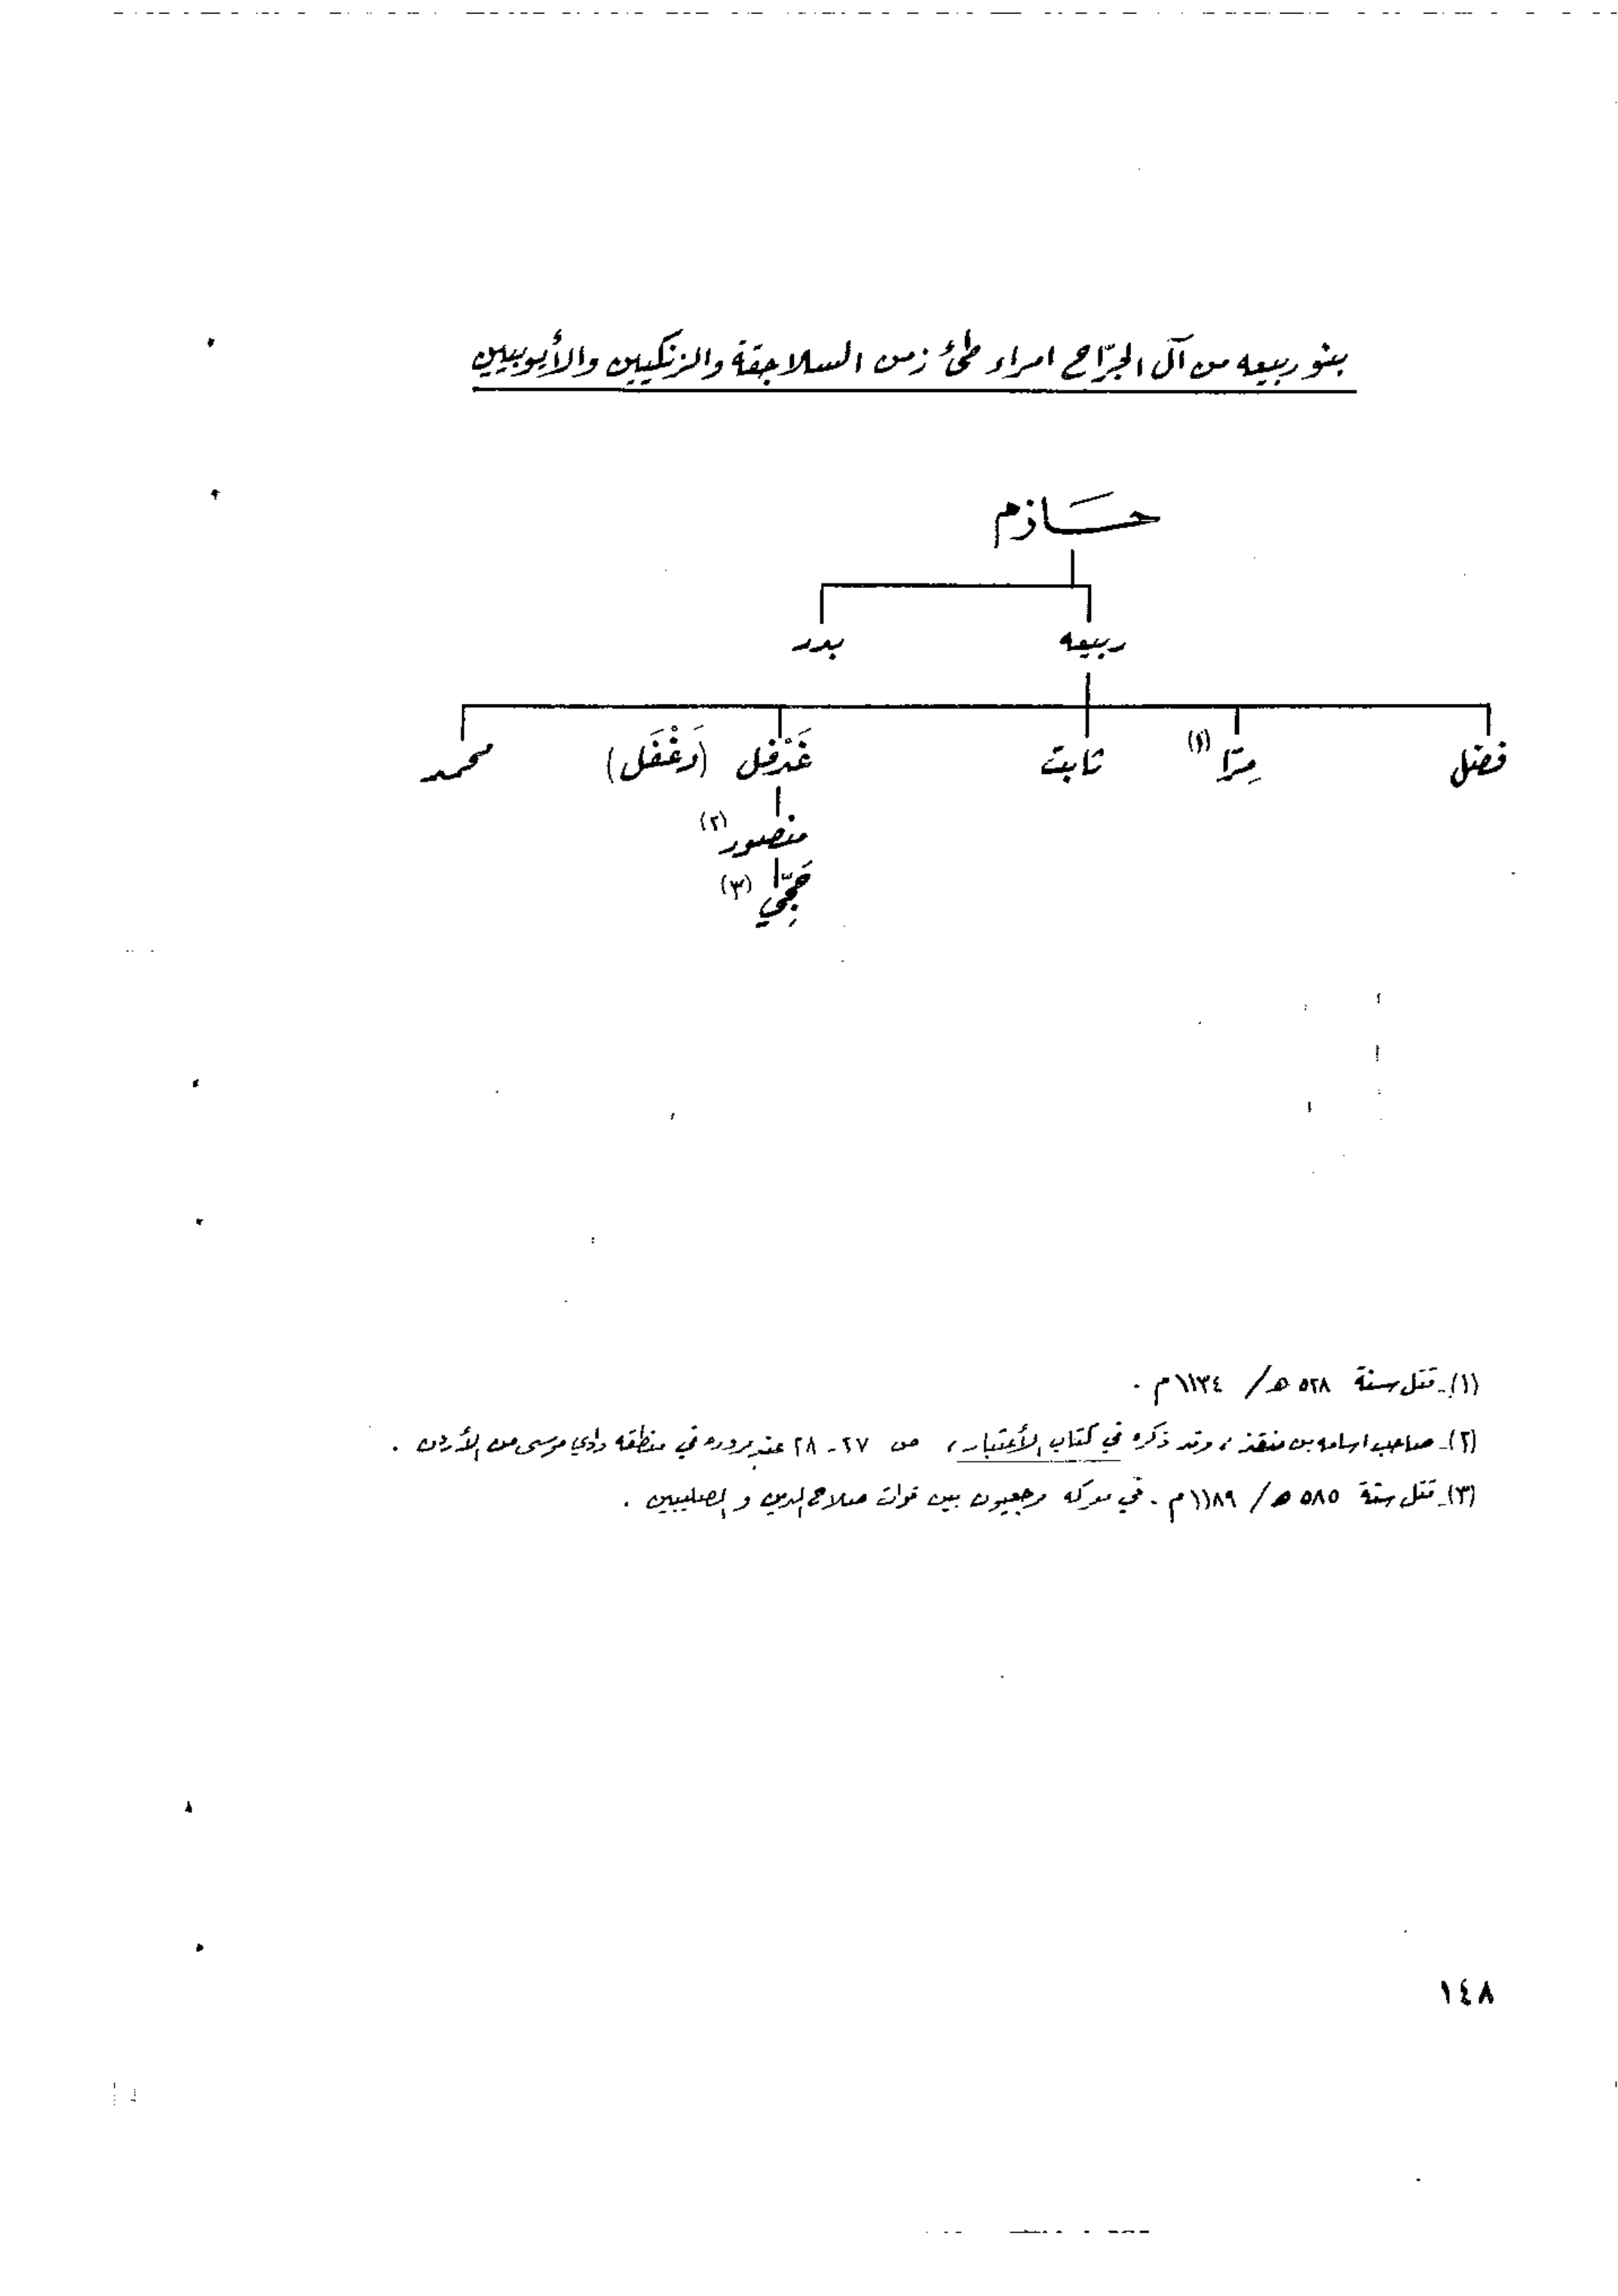 بنو ربيعه من آل الجرّاح امراء طئ زمن السلاجقة والزنكيين والأيوبيين
حَازم
ربيعه بدر
فضل مِرّا (١) ثابت غَدْفل (دَغْفَل) محمد
منصور (٢)
حَجِّي (٣)
(١)ـ قتل سنة ٥٢٨ هـ/ ١١٣٤م .
(٢)ـ صاحب اسامه بن منقذ ، وقد ذكره في كتاب الأعتبار ، ص ٢٧ـ ٢٨ عند مروره في منطقه وادي موسى من الأردن .
(٣)ـ قتل سنة ٥٨٥ هـ / ١١٨٩م . في معركه مرجعيون بين قوات صلاح الدين و الصليبيين .
١٤٨